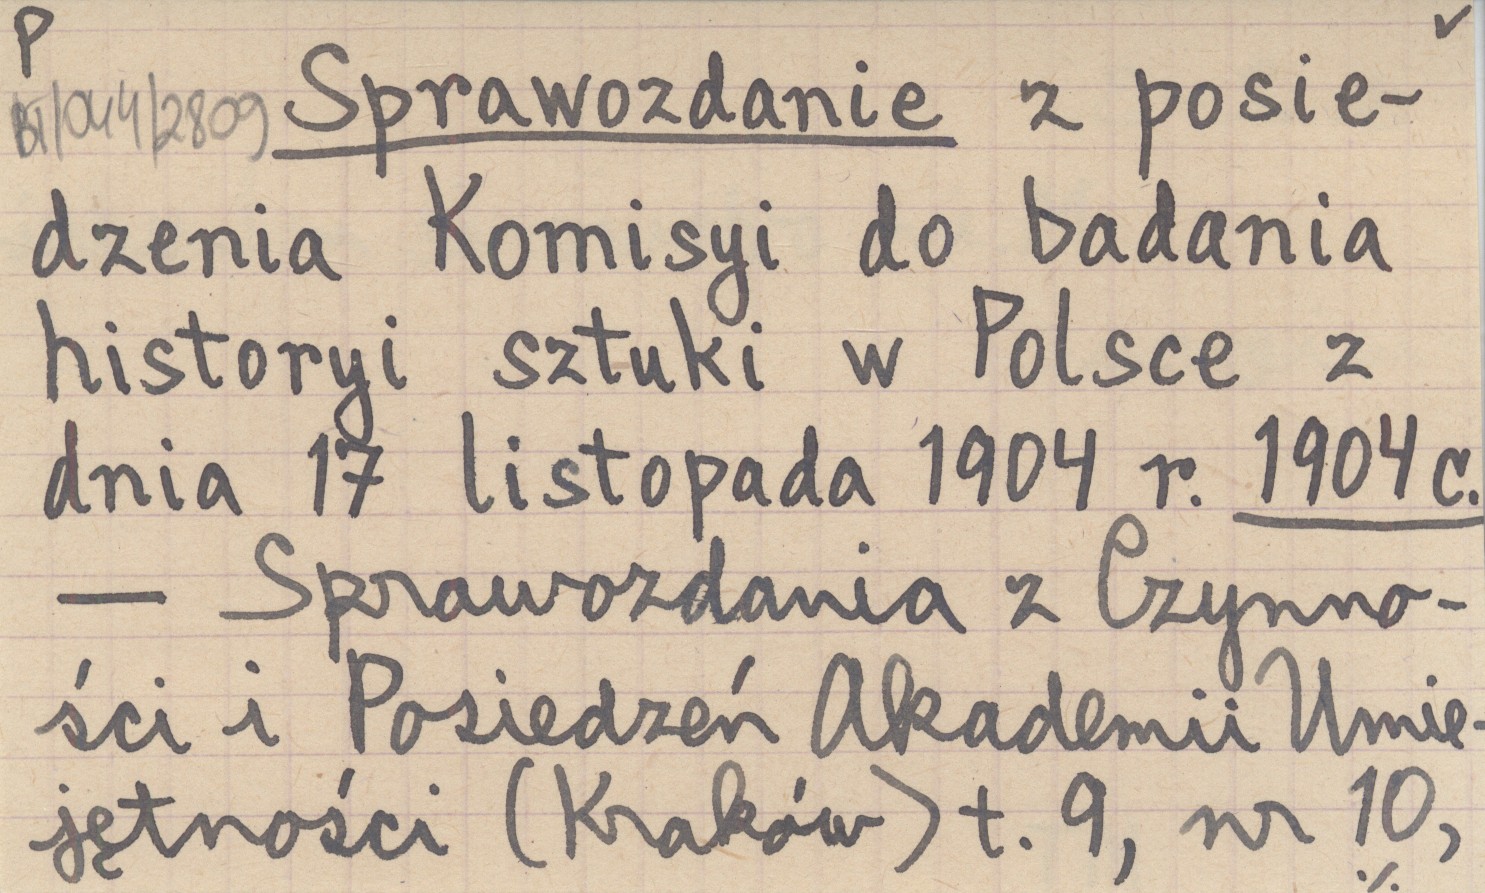 P ✓
BT/044/2809 Sprawozdanie z posie-
dzenia Komisyi do badania
historyi sztuki w Polsce z
dnia 17 listopada 1904 r. 1904 c.
— Sprawozdania z Czynno-
ści i Posiedzeń Akademii Umie-
jętności (Kraków) t. 9, nr 10,
./.